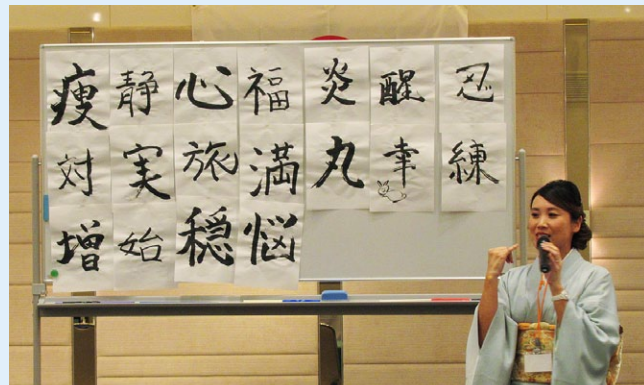 痩静心福炎醒忍
対実旅満丸幸練
増始穏悩